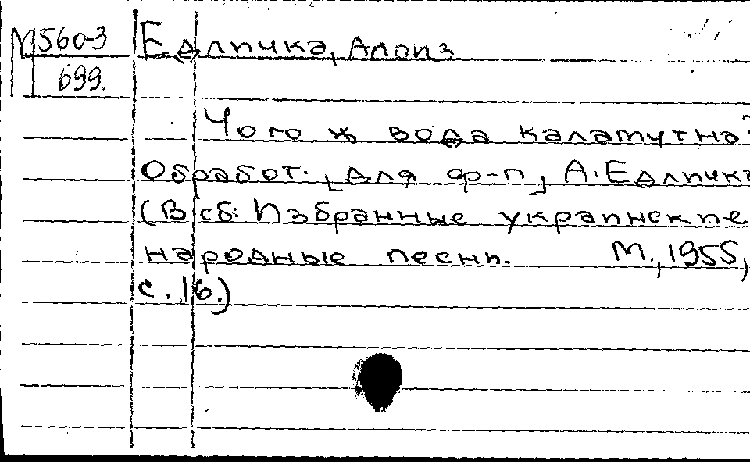 М560-3
699.
Едличка, Алоиз
Чого ж вода каламутна?
Обработ. [для ф-п] А. Едличка
(В сб: Избранные украинские
народные песни. М., 1955,
с. 16.)